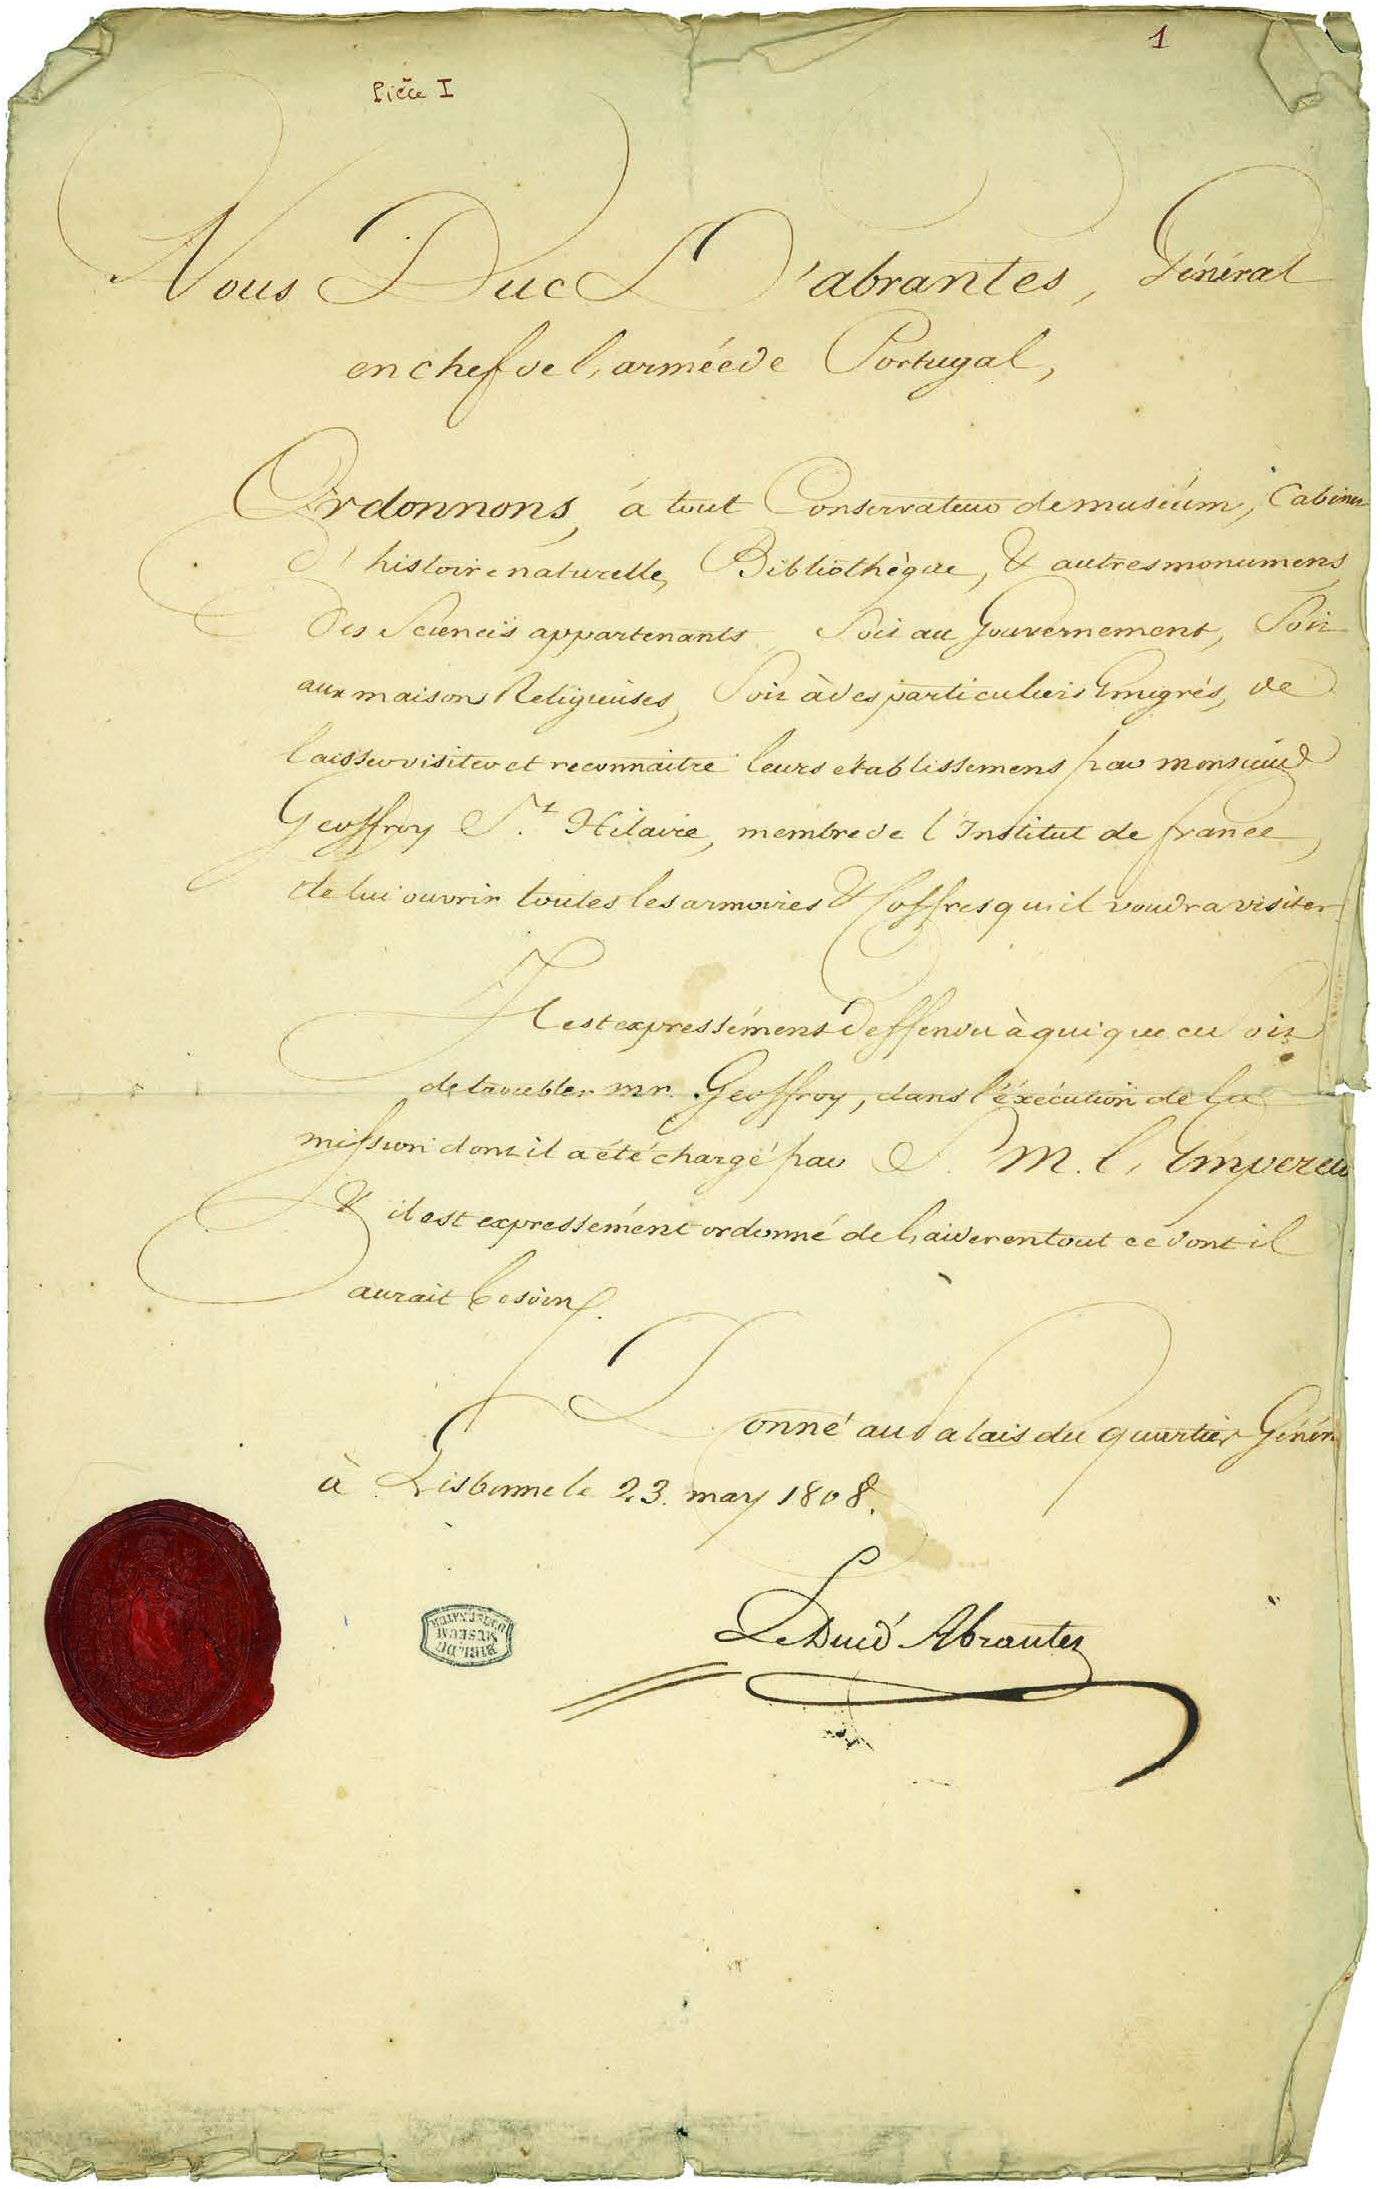 1
Pièce I
Nous Duc D'abrantes, Général
en chef de l'armée de Portugal,
Ordonnons, à tout Conservateur de muséum, Cabinet
d'histoire naturelle, Bibliothèque, & autres monumens
des Sciences appartenants, Soit au Gouvernement, Soit
aux maisons Religieuses, Soit à des particuliers Emigrés, de
laisser visiter et reconnaitre leurs établissemens par monsieur
Geoffroy St. Hilaire, membre de l'Institut de france,
de lui ouvrir toutes les armoires & Coffres qu'il voudra visiter
Il est expressément deffendu à qui que ce Soit
de troubler mr. Geoffroy, dans l'éxécution de la
mission dont il a été chargé par S. M. l'Empereur
& il est expressément ordonné de l'aider en tout ce dont il
aurait besoin.
Donné au Palais du quartier Génér
à Lisbonne le 23. may 1808.
Le Duc d'Abrantes
BIBL. DU
MUSEUM
D'HIST. NATUR.